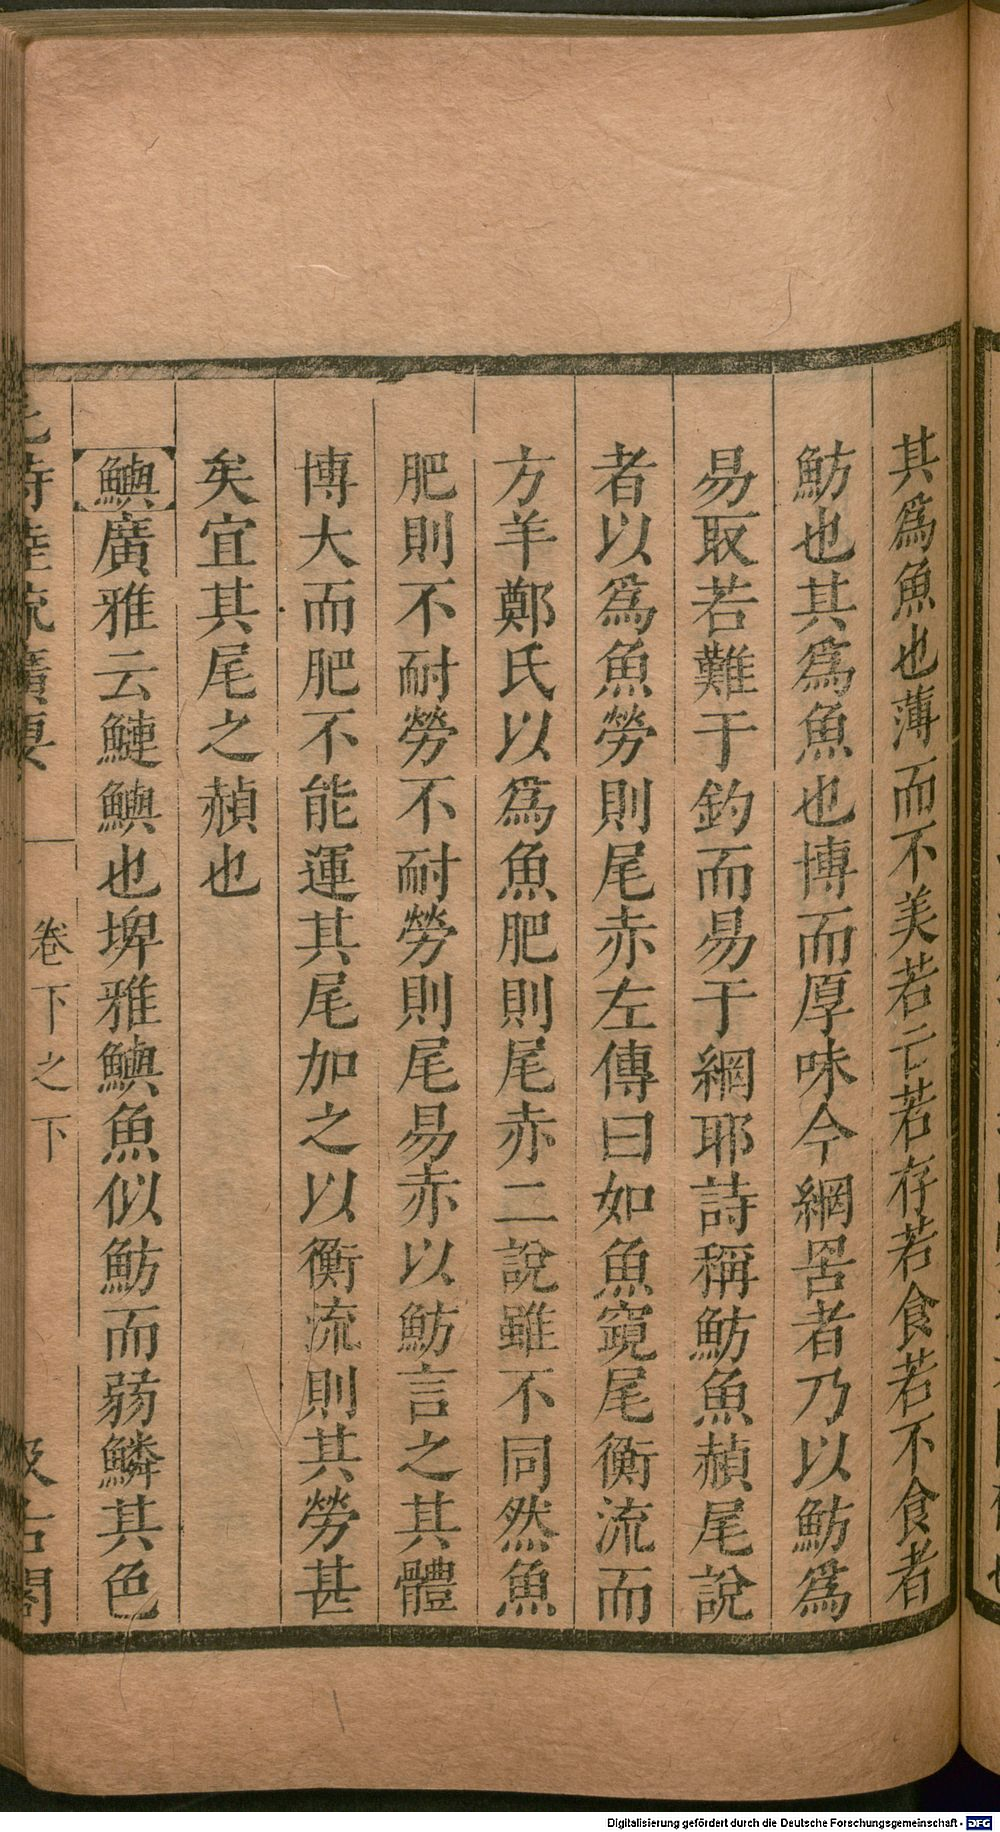 其爲魚也薄而不美若亡若存若食若不食者
魴也其爲魚也博而厚味今網罟者乃以魴爲
易取若難于釣而易于網耶詩稱魴魚赬尾說
者以爲魚勞則尾赤左傳曰如魚窺尾衡流而
方羊鄭氏以爲魚肥則尾赤二說雖不同然魚
肥則不耐勞不耐勞則尾易赤以魴言之其體
博大而肥不能運其尾加之以衡流則其勞甚
矣宜其尾之赬也
鱮廣雅云鰱鱮也埤雅鱮魚似魴而弱鱗其色
毛詩陸疏廣要
卷下之下
汲古閣
Digitalisierung gefördert durch die Deutsche Forschungsgemeinschaft - DFG